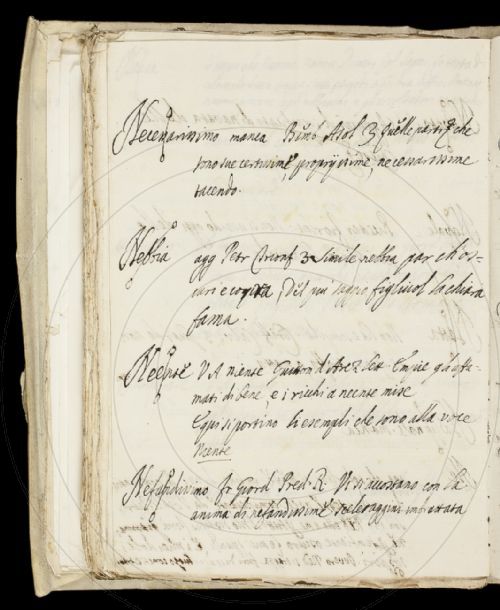 Necessarissimo manca Bemb Asol 3 quelle parti che
sono sue certissime, proprijssime, necessarissime
tacendo.
Nebbia agg Petr Trionf 3 Simile nebbia par ch'os-
curi e copra, Del più saggio figliuol la chiara
fama.
Neente V A niente Guitton d'Arez lett gl'affa-
mati di bene, e i ricchi a neente mise
Equi si portino li esempli che sono alla voce
Niente
Nefandissimo Fr Giord Pred R. Vi si accostano con la
anima di nefandissime scelleraggini imbrattata